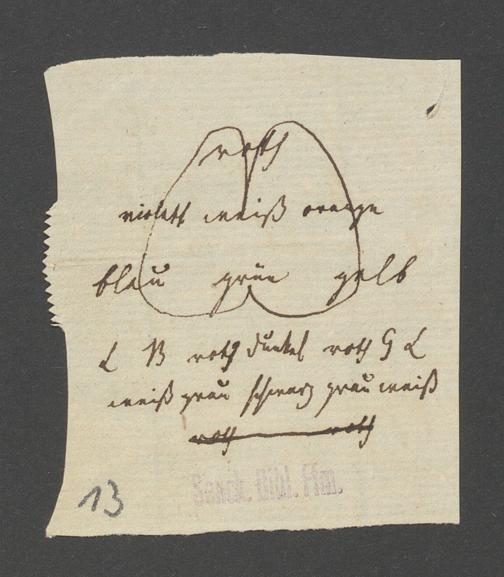 roth
violett weiß orange
blau grün gelb
L B roth dunkel roth G L
weiß grau schwarz grau weiß
roth roth
Senck. Bibl. Ffm.
13